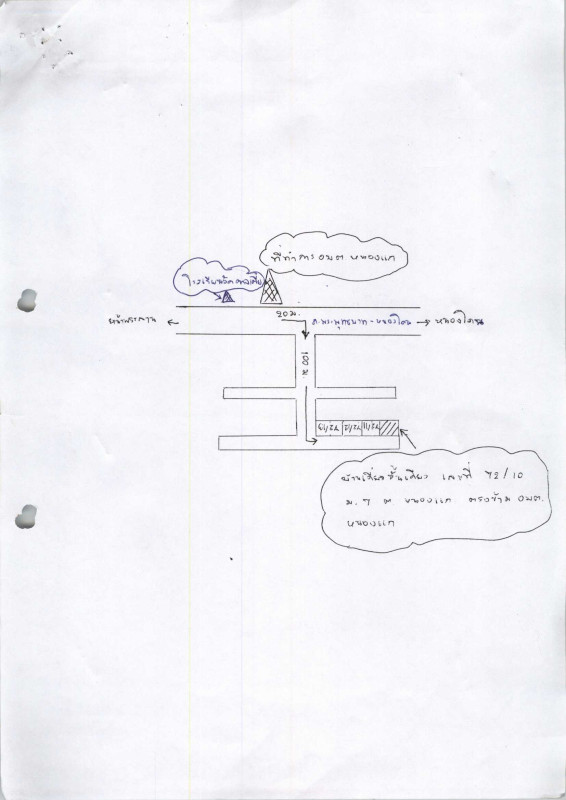 ที่ทำการ อบต หนองแก
โรงเรียนวัด
หน้าพระลาน
20 ม.
ถ.พระพุทธบาท - หนองโดน
หนองโดน
100 ม.
72/13 72/12 72/11
บ้านเดี่ยวชั้นเดียว เลขที่ 72/10
ม. 7 ต หนองแก ตรงข้าม อบต.
หนองแก